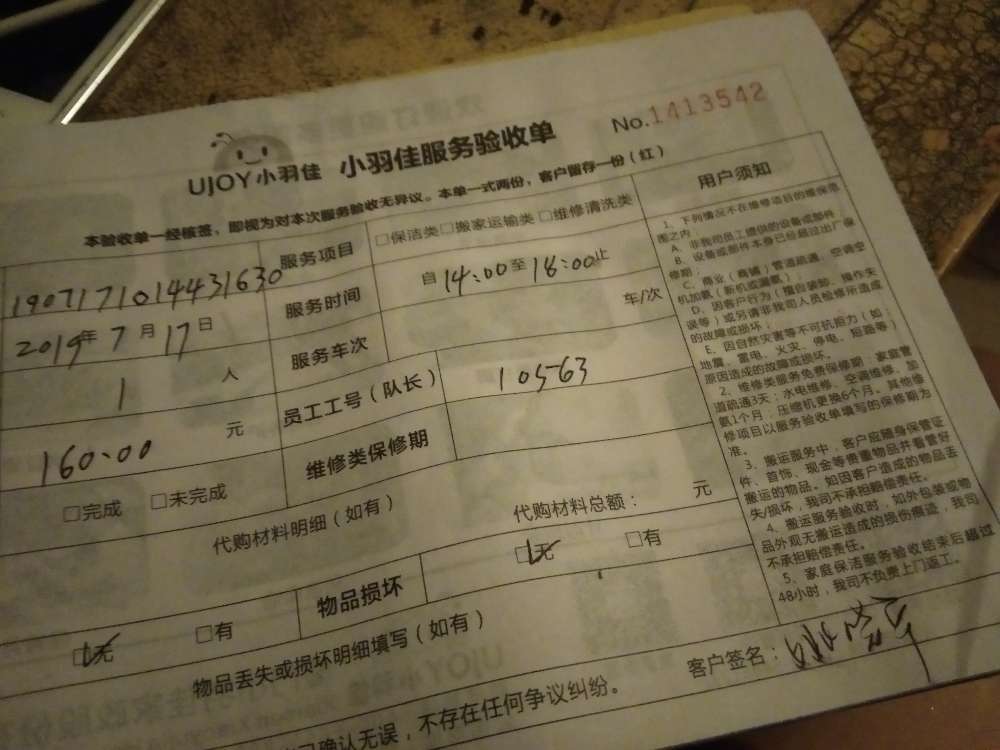 No.1413542
UJOY小羽佳 小羽佳服务验收单
本验收单一经核签，即视为对本次服务验收无异议。本单一式两份，客户留存一份（红）
1907171014431630
服务项目
□保洁类□搬家运输类□维修清洗类
2019年7月17日
服务时间
自14:00至18:00止
1人
服务车次
车/次
160.00元
员工工号（队长）
10563
□完成 □未完成
维修类保修期
代购材料明细（如有）
代购材料总额： 元
□无 □有
物品损坏
□无 □有
物品丢失或损坏明细填写（如有）
确认无误，不存在任何争议纠纷。
客户签名：
用户须知
1、下列情况不在维修项目的维保范
围之内：
A、非我司员工提供的设备或部件
B、设备或部件本身已经超过出厂保
修期；
C、商业（商铺）管道疏通、空调空
机加氨（新机或漏氨）；
D、因客户行为（擅自装卸、操作失
误等）或另请非我司人员检修所造成
的故障或损坏；
E、因自然灾害等不可抗拒力（如：
地震、雷电、火灾、停电、短路等）
原因造成的故障或损坏。
2、维修类服务免费保修期：家庭管
道疏通3天；水电维修、空调维修、加
氨1个月；压缩机更换6个月。其他维
修项目以服务验收单填写的保修期为
准。
3、搬运服务中，客户应随身保管证
件、首饰、现金等贵重物品并看管好
搬运的物品。如因客户造成的物品丢
失/损坏，我司不承担赔偿责任。
4、搬运服务验收时，如外包装或物
品外观无搬运造成的损伤痕迹，我司
不承担赔偿责任。
5、家庭保洁服务验收结束后超过
48小时，我司不负责上门返工。